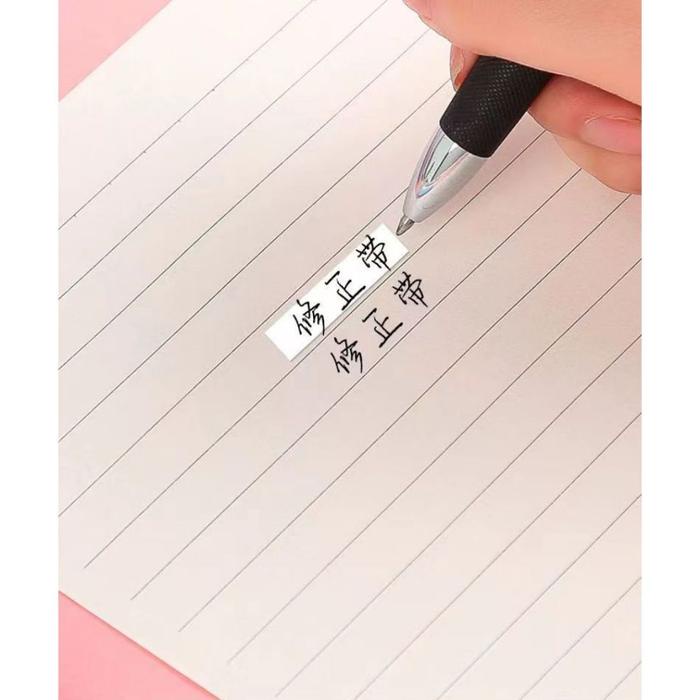 修正带
修正带